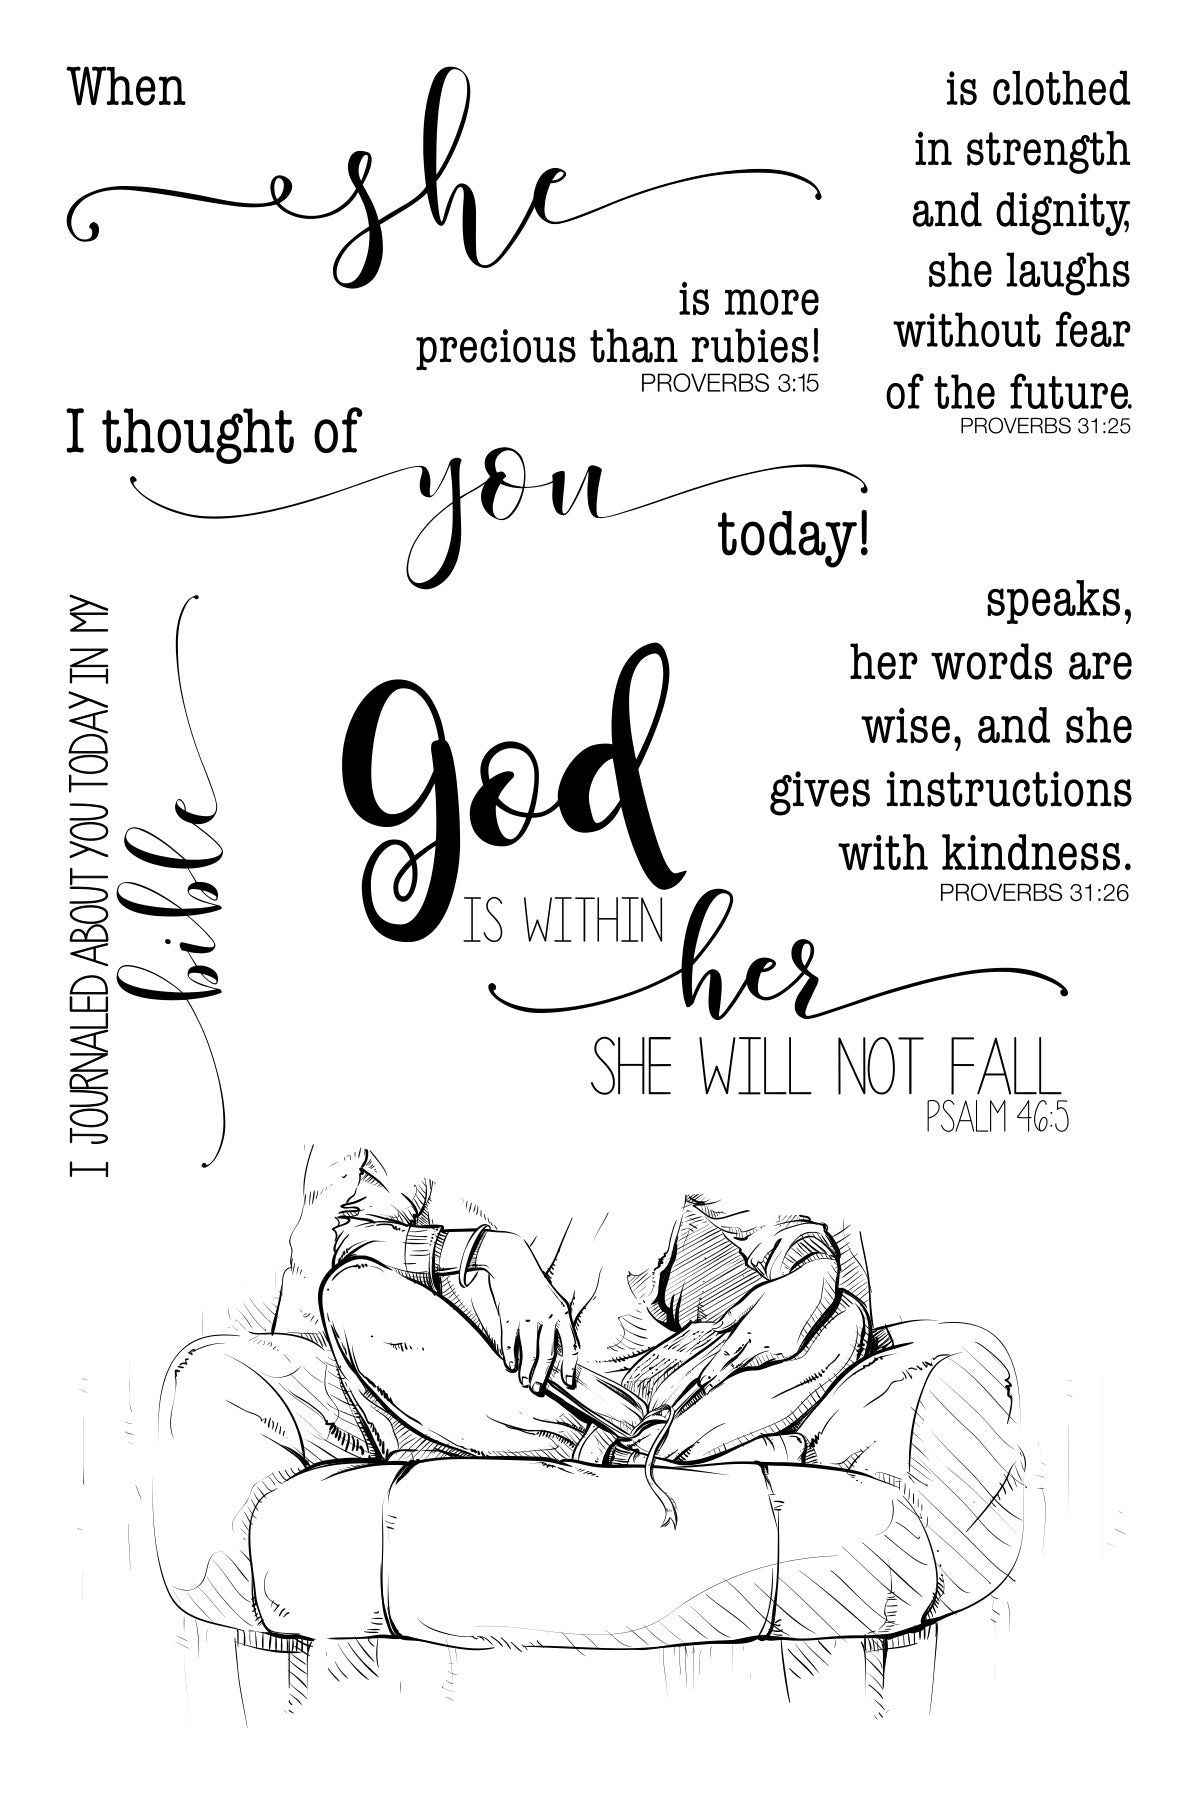 When
she
is more
precious than rubies!
PROVERBS 3:15
is clothed
in strength
and dignity,
she laughs
without fear
of the future.
PROVERBS 31:25
I thought of
you
today!
speaks,
her words are
wise, and she
gives instructions
with kindness.
PROVERBS 31:26
I JOURNALED ABOUT YOU TODAY IN MY
bible
god
IS WITHIN
her
SHE WILL NOT FALL
PSALM 46:5